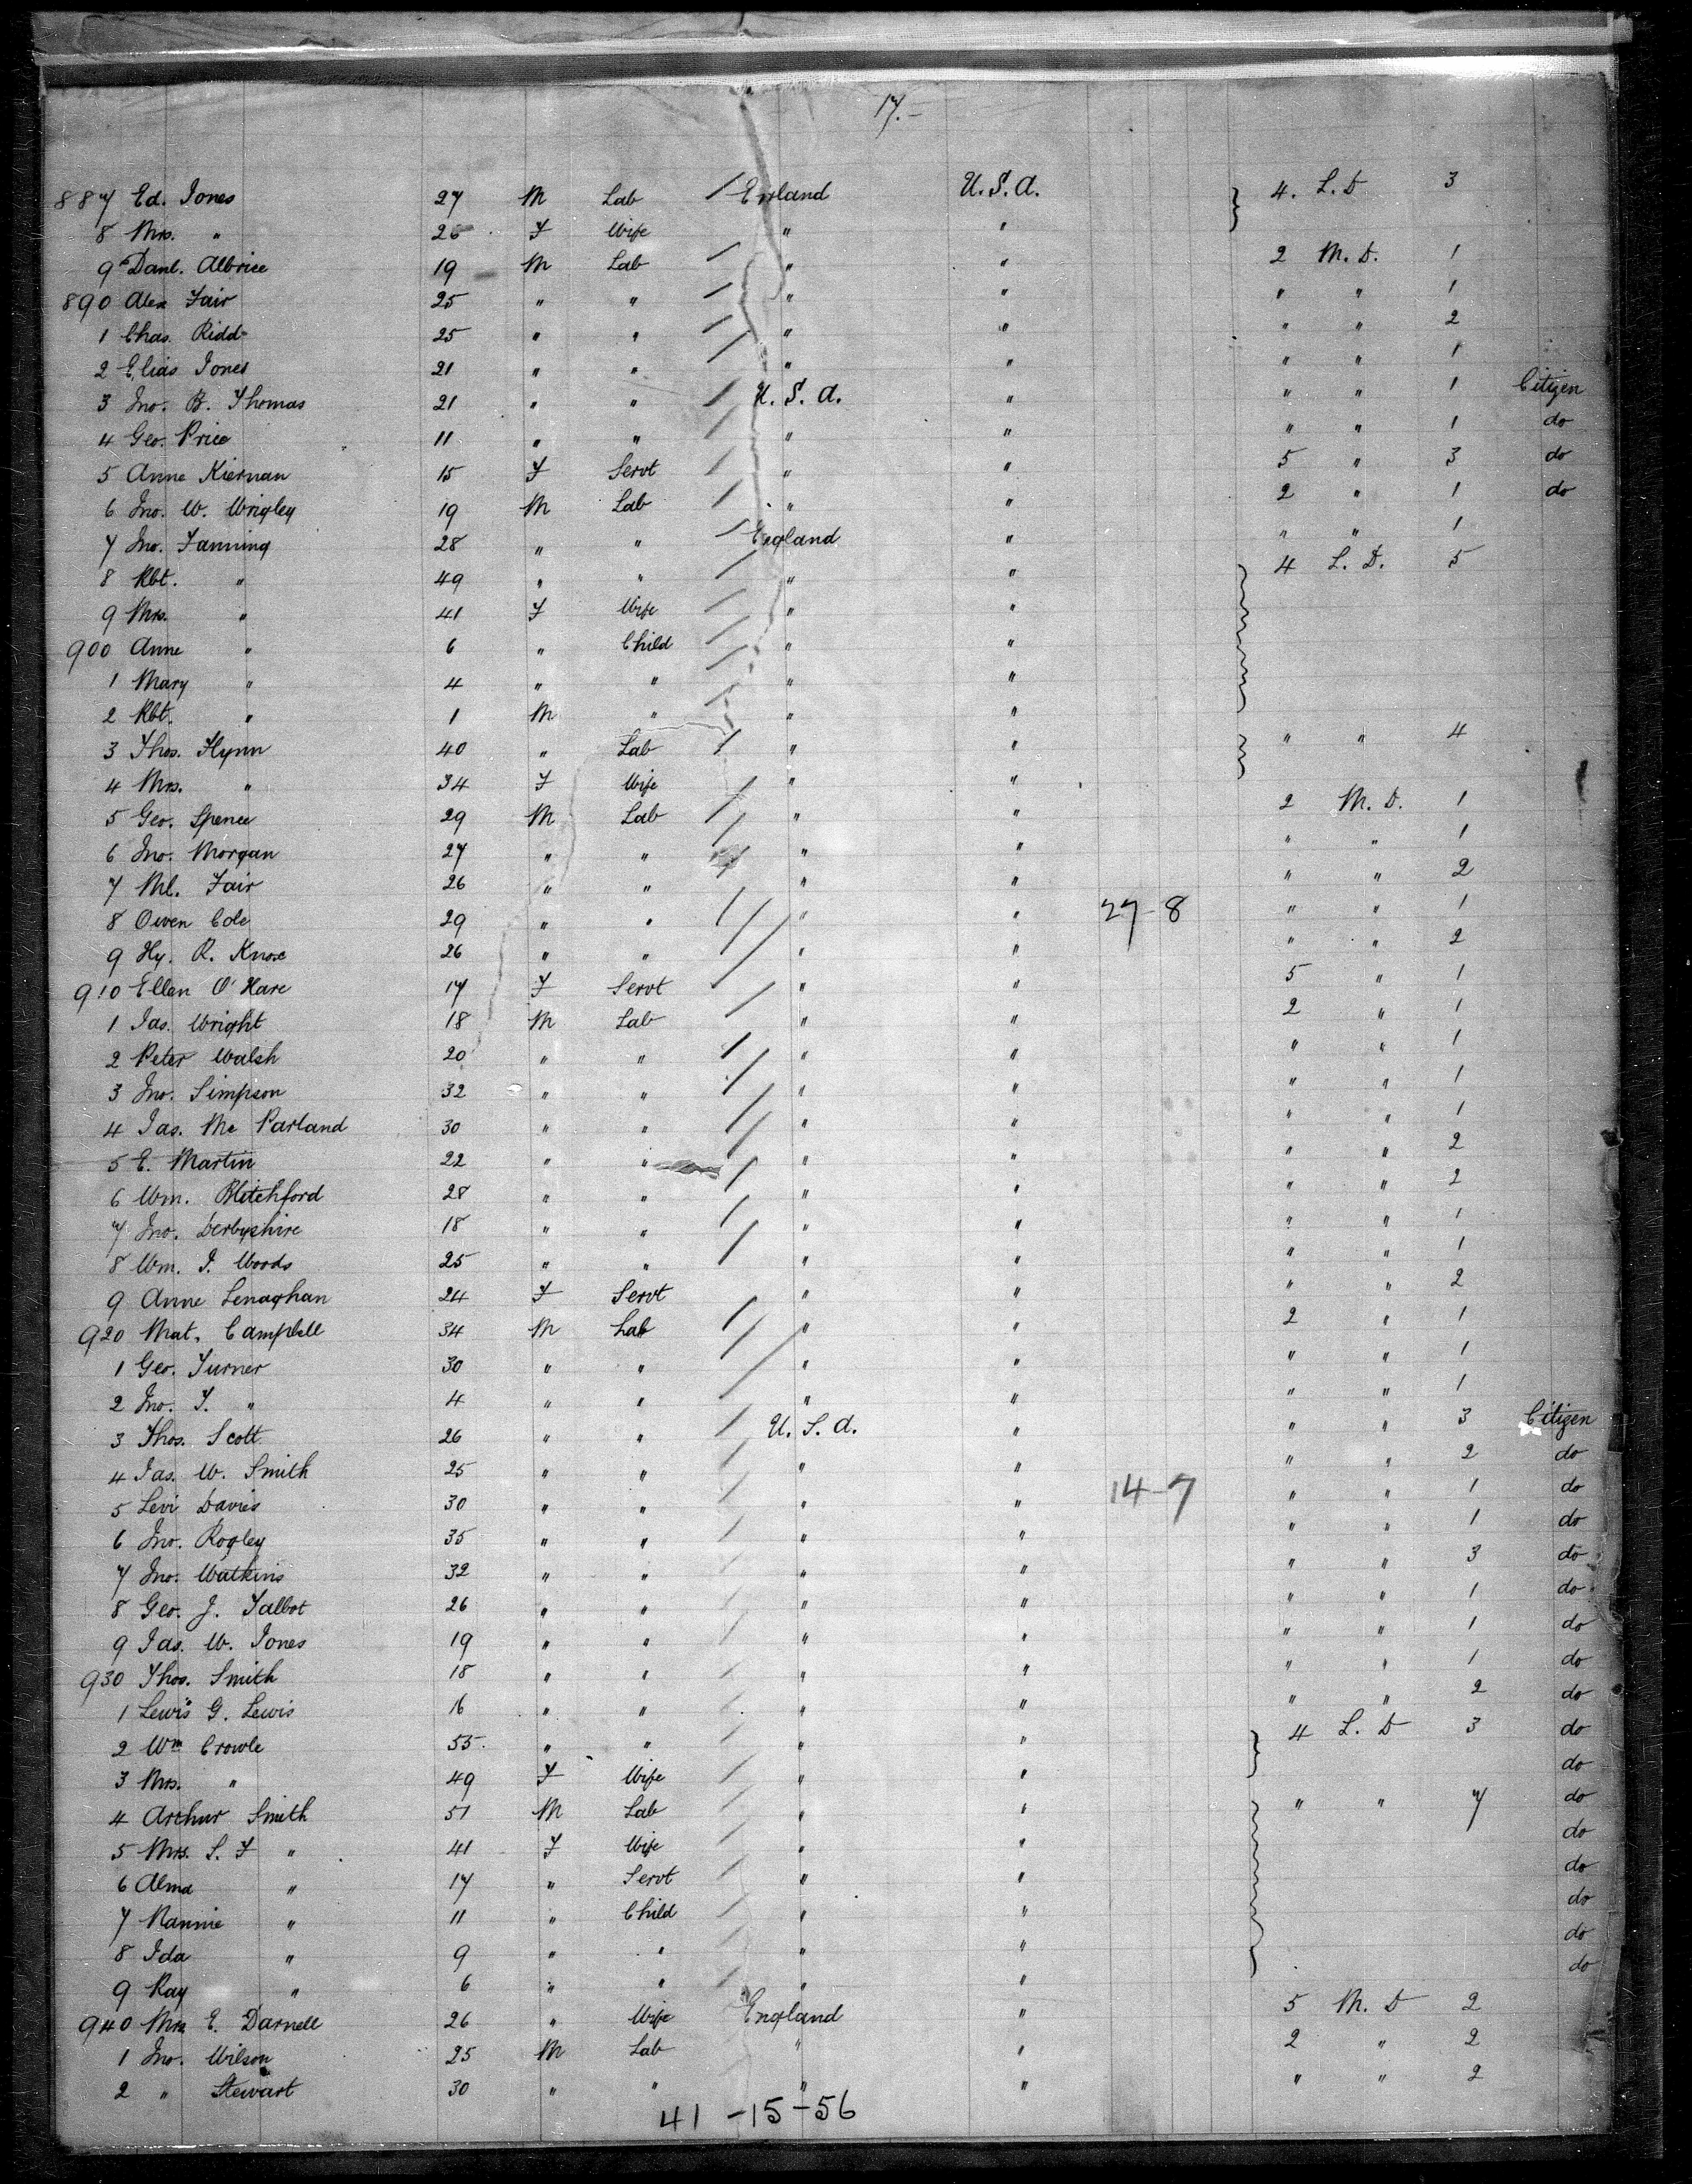 17.-
887 Ed. Jones 27 M Lab England U.S.A. 4. L.D 3
8 Mrs. " 26 F Wife " "
9 Danl. Albrice 19 M Lab " " 2 M.D. 1
890 Alex Fair 25 " " " " " " 1
1 Chas. Ridd 25 " " " " " " 2
2 Elias Jones 21 " " " " " " 1
3 Jno. B. Thomas 21 " " U.S.A. " " " 1 Citizen
4 Geo. Price 11 " " " " " " 1 do
5 Anne Kiernan 15 F Servt " " 5 " 3 do
6 Jno. W. Wrigley 19 M Lab " " 2 " 1 do
7 Jno. Fanning 28 " " England " " " 1
8 Rbt. " 49 " " " " 4 L.D. 5
9 Mrs. " 41 F Wife " "
900 Anne " 6 " Child " "
1 Mary " 4 " " " "
2 Rbt. " 1 M " " "
3 Thos. Flynn 40 " Lab " " " " 4
4 Mrs. " 34 F Wife " "
5 Geo. Spence 29 M Lab " " 2 M.D. 1
6 Jno. Morgan 27 " " " " " " 1
7 Ml. Fair 26 " " " " " " 2
8 Owen Cole 29 " " " " 27-8 " " 1
9 Hy. R. Knox 26 " " " " " " 2
910 Ellen O'Hare 17 F Servt " " 5 " 1
1 Jas. Wright 18 M Lab " " 2 " 1
2 Peter Walsh 20 " " " " " " 1
3 Jno. Simpson 32 " " " " " " 1
4 Jas. Mc Parland 30 " " " " " " 1
5 E. Martin 22 " " " " " " 2
6 Wm. Blitchford 28 " " " " " " 2
7 Jno. Derbyshire 18 " " " " " " 1
8 Wm. J. Woods 25 " " " " " " 1
9 Anne Lenaghan 24 F Servt " " " " 2
920 Mat. Campbell 34 M Lab " " 2 " 1
1 Geo. Turner 30 " " " " " " 1
2 Jno. T. " 4 " " " " " " 1
3 Thos. Scott 26 " " U.S.A. " " " 3 Citizen
4 Jas. W. Smith 25 " " " " " " 2 do
5 Levi Davies 30 " " " " 14-7 " " 1 do
6 Jno. Rogley 35 " " " " " " 1 do
7 Jno. Watkins 32 " " " " " " 3 do
8 Geo. J. Talbot 26 " " " " " " 1 do
9 Jas. W. Jones 19 " " " " " " 1 do
930 Thos. Smith 18 " " " " " " 1 do
1 Lewis G. Lewis 16 " " " " " " 2 do
2 Wm Crowle 55. " " " " 4 L.D 3 do
3 Mrs. " 49 F Wife " " do
4 Arthur Smith 51 M Lab " " " " 7 do
5 Mrs. S. F " 41 F Wife " " do
6 Alma " 17 " Servt " " do
7 Nannie " 11 " Child " " do
8 Ida " 9 " " " " do
9 Ray " 6 " " " " do
940 Mrs E. Darnell 26 " Wife England " 5 M.D 2
1 Jno. Wilson 25 M Lab " " 2 " 2
2 " Stewart 30 " " " " " " 2
41-15-56